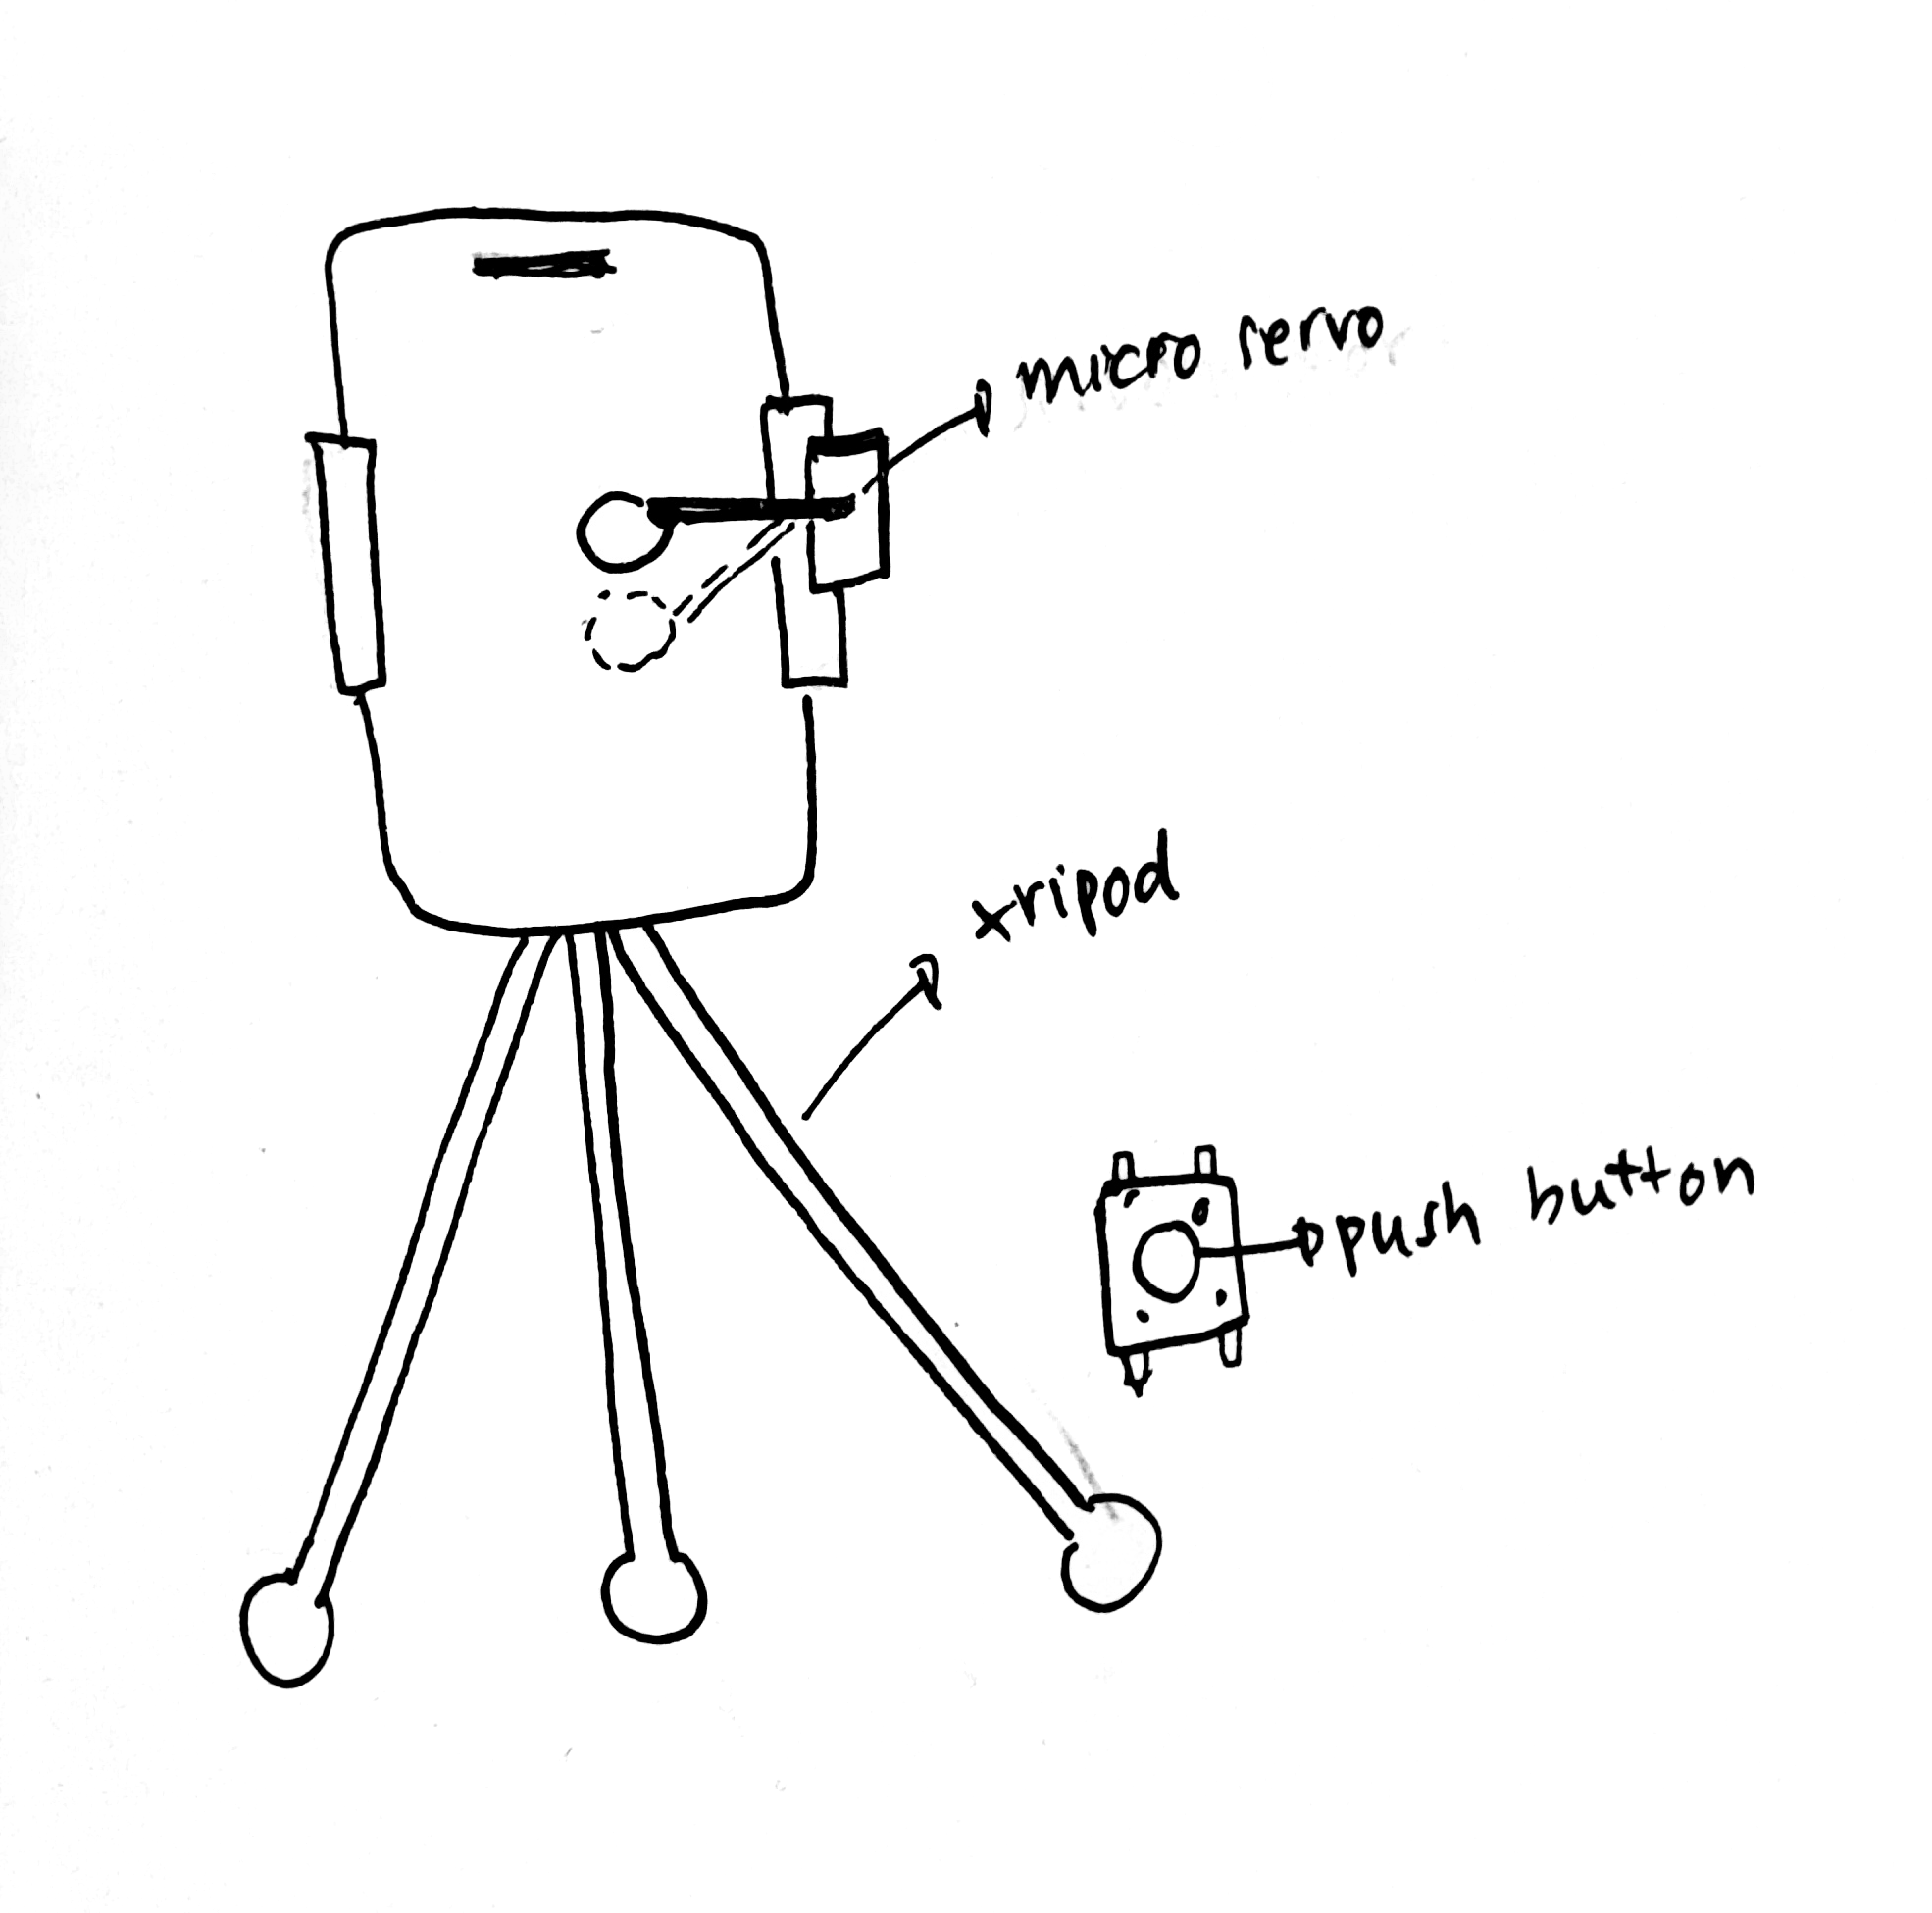 micro servo
tripod
push button